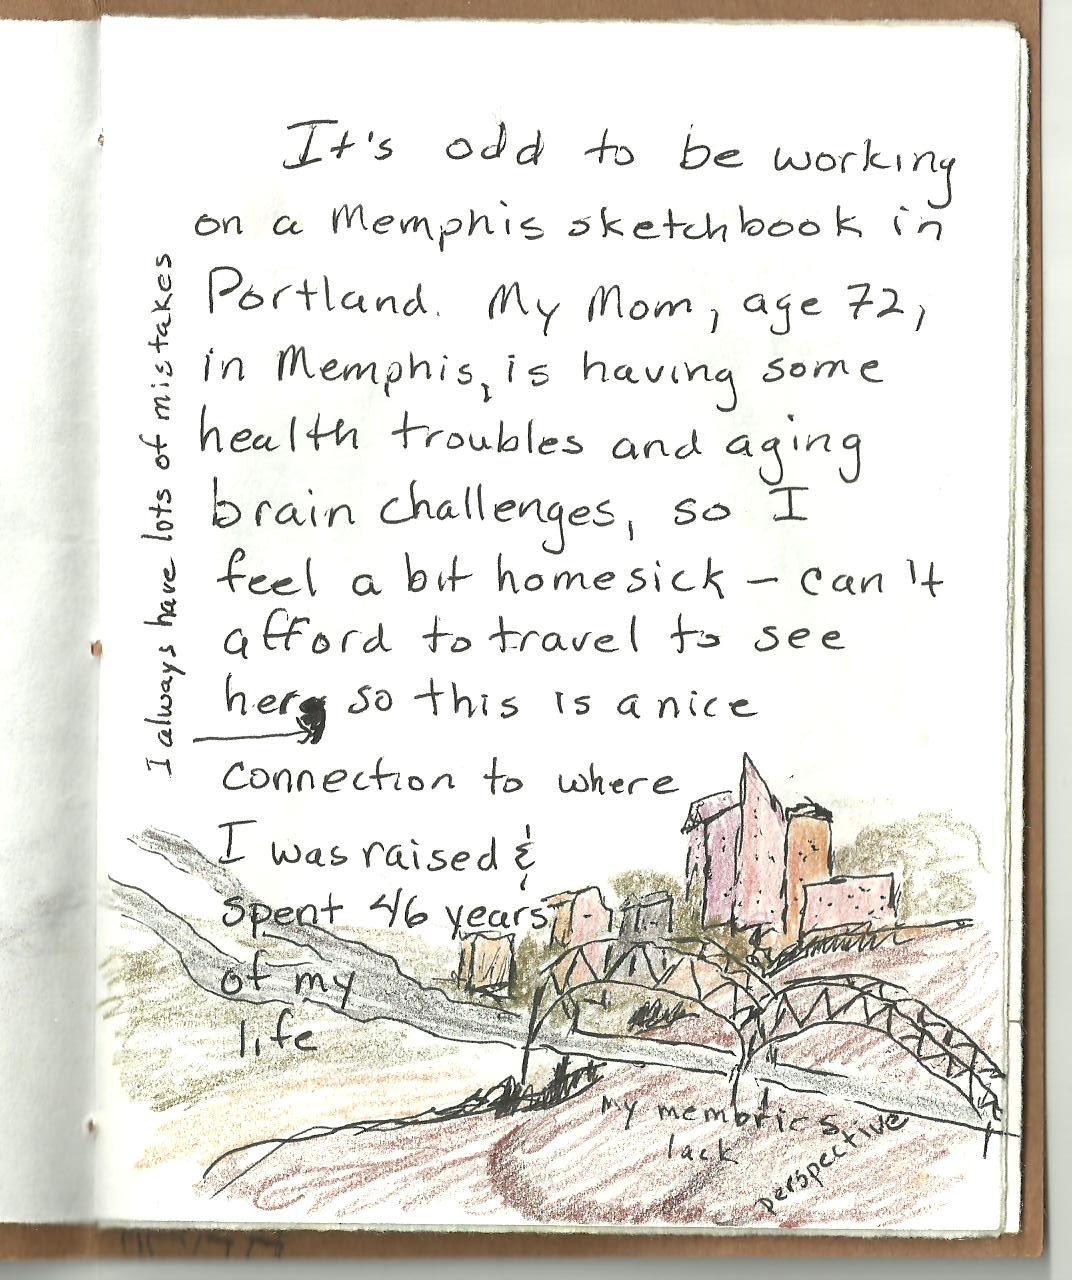 It's odd to be working
on a Memphis sketchbook in
Portland. My Mom, age 72,
in Memphis, is having some
health troubles and aging
brain challenges, so I
feel a bit homesick – can't
afford to travel to see
her, so this is a nice
connection to where
I was raised &
spent 46 years
of my
life
I always have lots of mistakes
My memories
lack
perspective